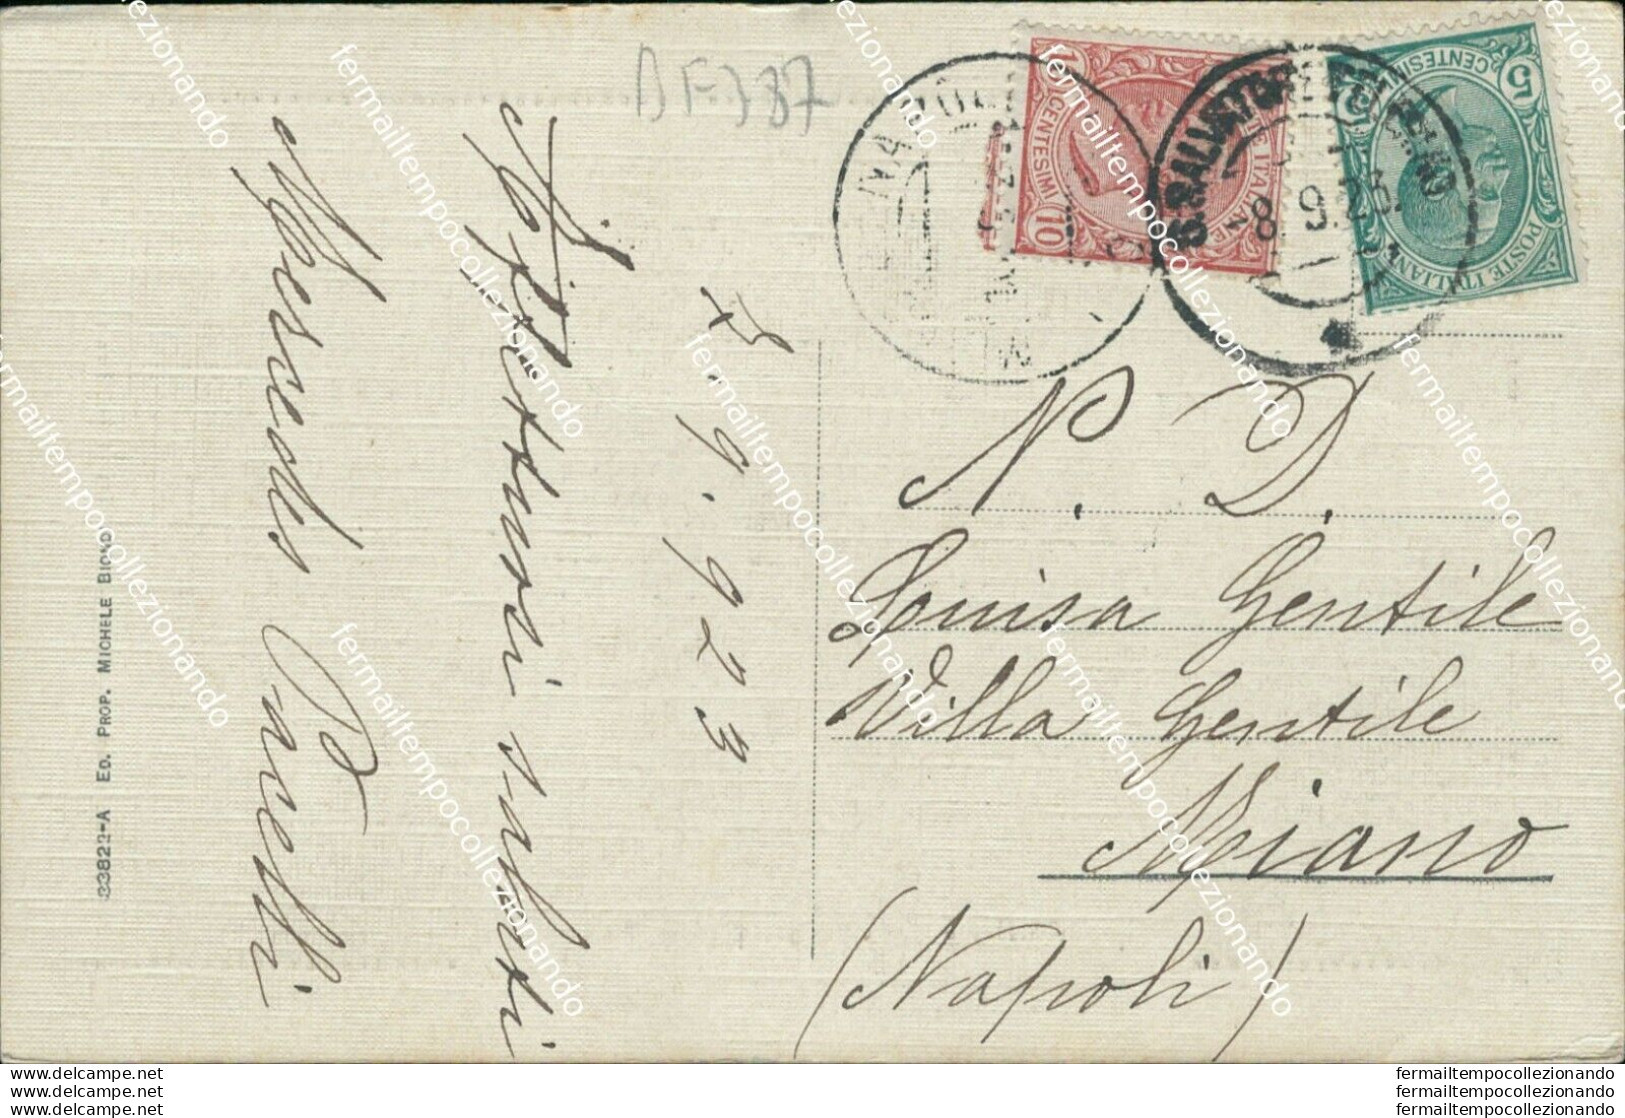 DF387
10 CENTESIMI 10
POSTE ITALIANE
CENTESIMI 5
POSTE ITALIANE
S. SALVATORE TELESINO
8. 9. 23.
NAPOLI
8. 9. 923
Affettuosi saluti
Mercedes Pacelli
N. D.
Luisa Gentile
Villa Gentile
Miano
(Napoli)
33822-A ED. PROP. MICHELE BIONDI
fermailtempocollezionando
www.delcampe.net
www.delcampe.net
www.delcampe.net
fermailtempocollezionando
fermailtempocollezionando
fermailtempocollezionando